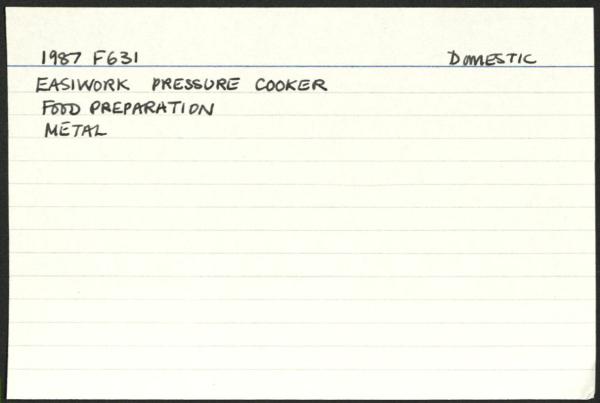 1987 F631 DOMESTIC
EASIWORK PRESSURE COOKER
FOOD PREPARATION
METAL